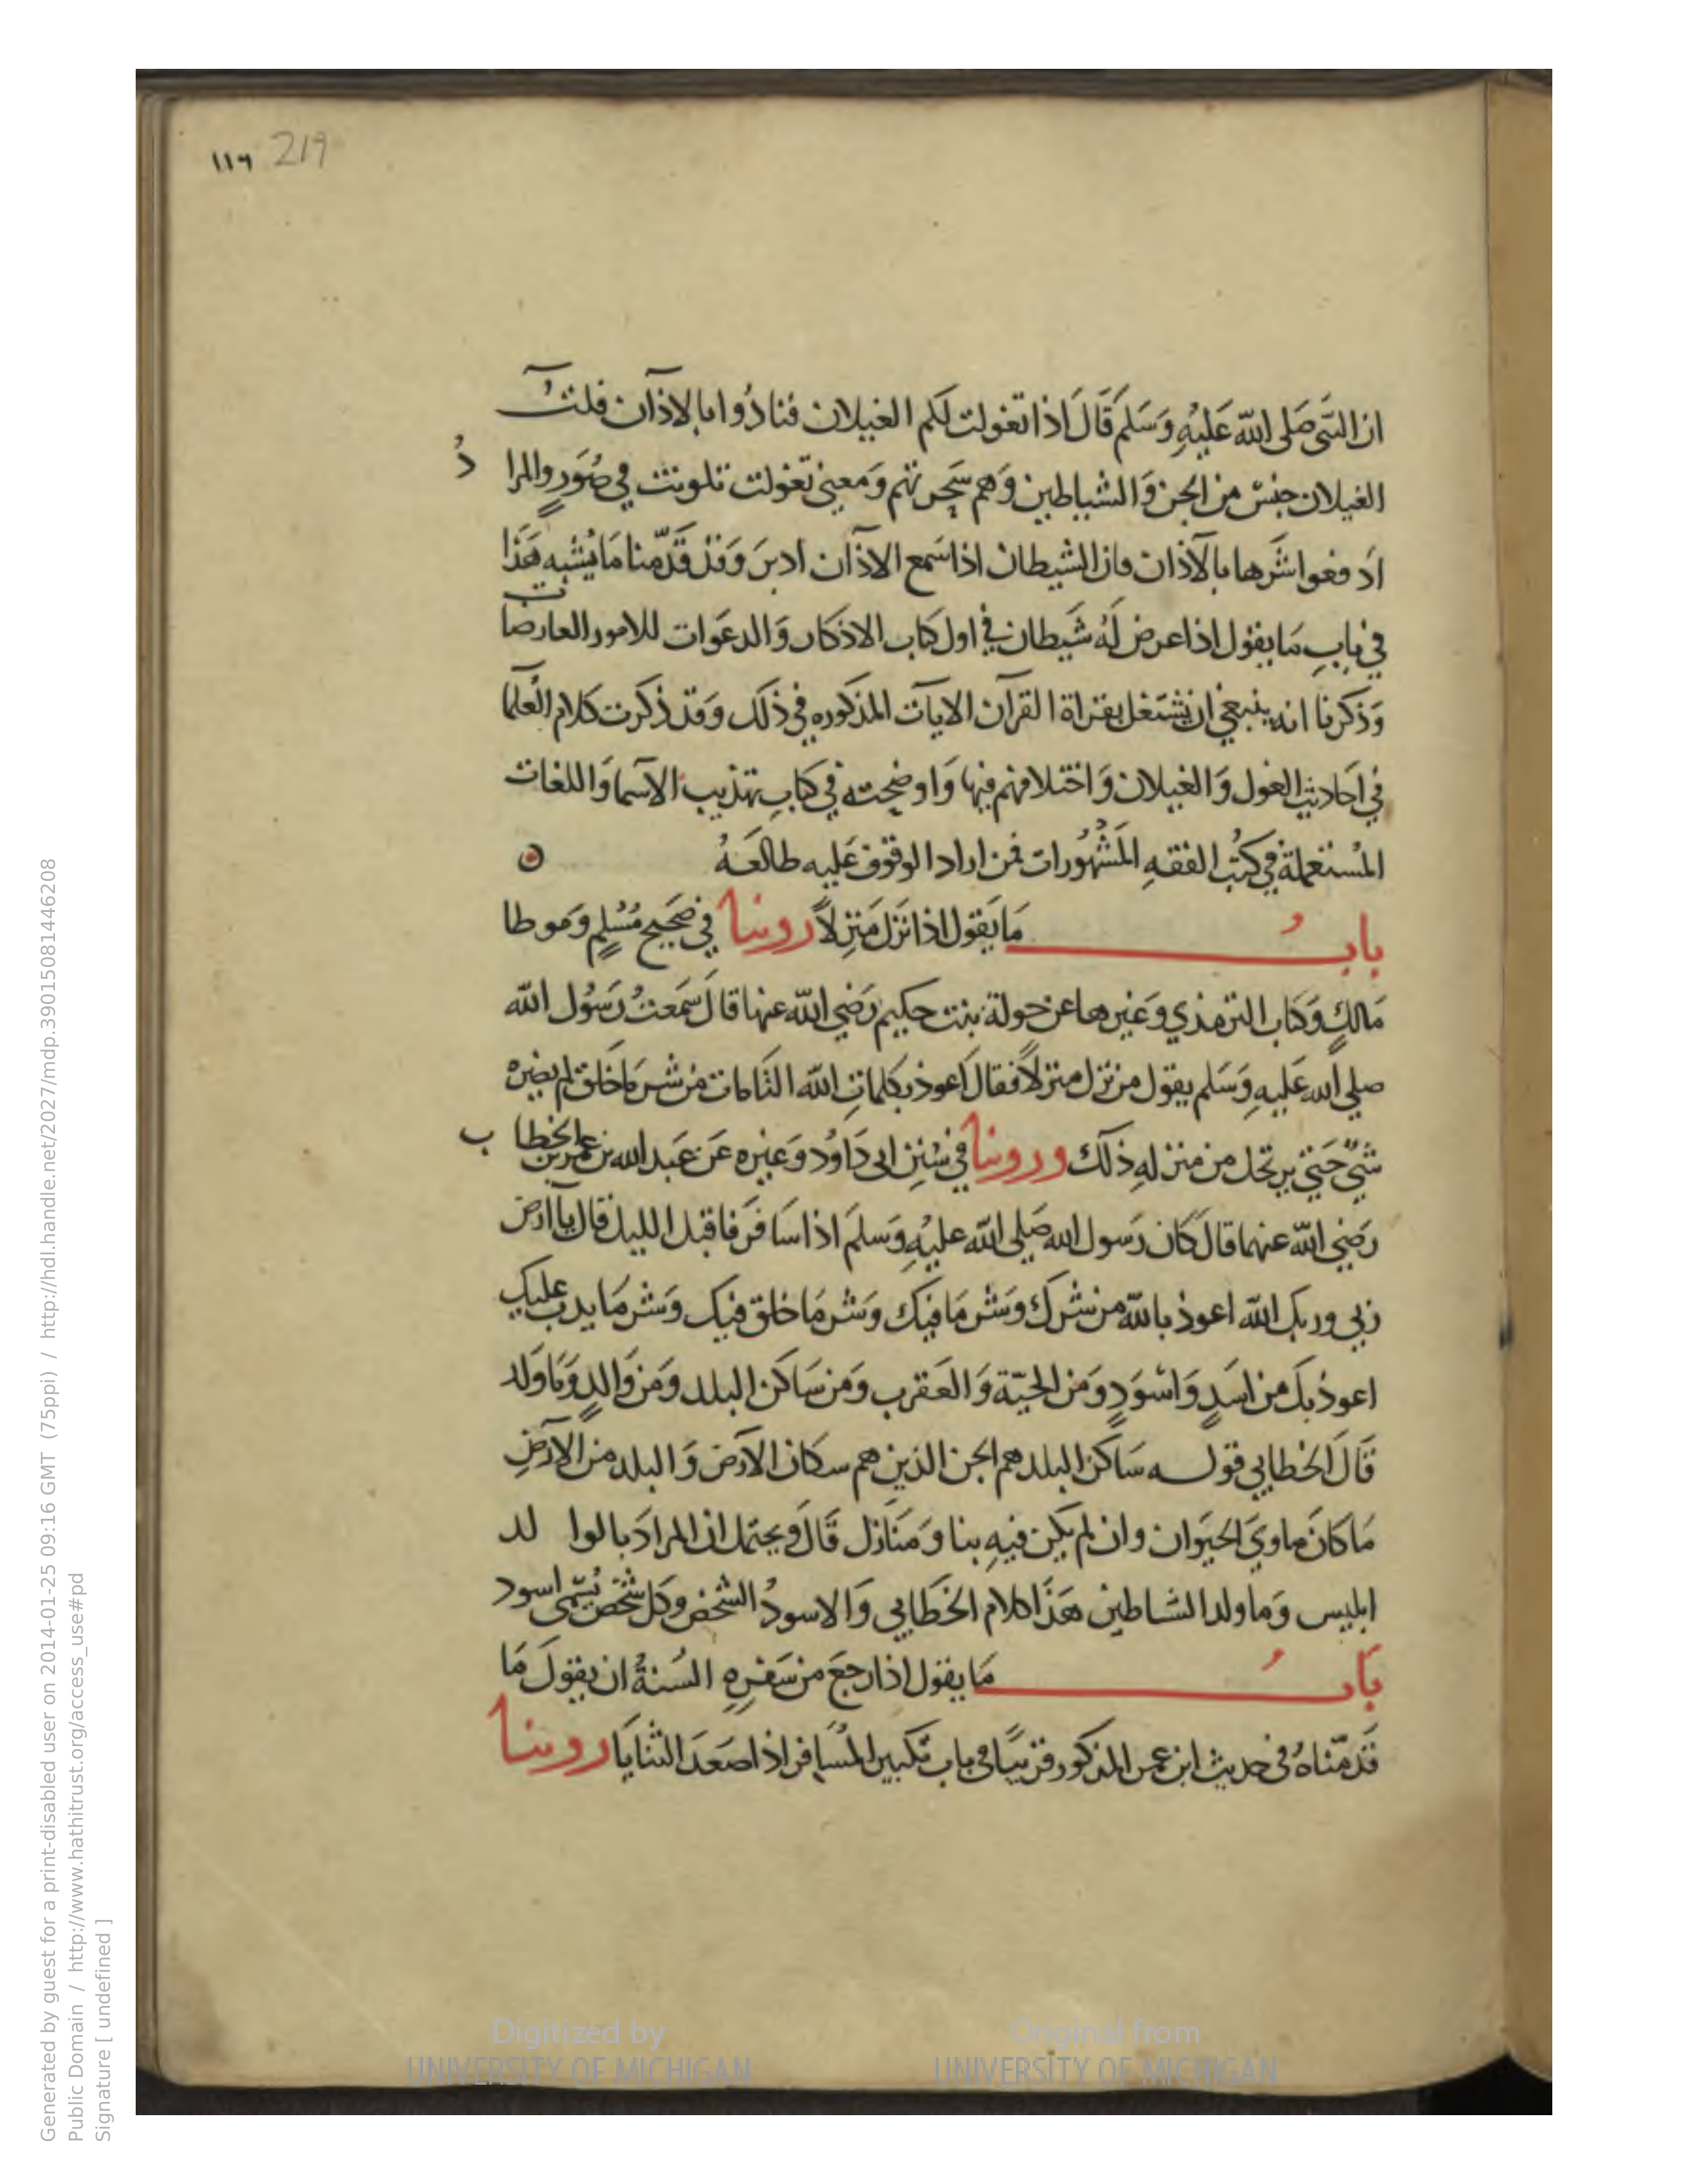 ١١٦ 219
ان النبَّي صَلى الله عَليْهِ وَسَلمَ قَالَ اذا تغولت لكم الغيلان فنادُوا بالاذآن قلتُ
الغيلان جنسٌ من الجن وَالشياطين وَهم سَحرتهم وَمعنى تغولت تلونت في صُوَرٍ والمرا دُ
ادَفعوا شَرها بالآذان فان الشيطان اذا سَمع الاذآن ادبرَ وَقد قَدّمنا مَا يُشبه هَذا
في بابِ مَا يقول اذا عرض لَهُ شَيطان في اول كتاب الاذكار وَالدعَوات للامور العارضات
وَذكرنا انه ينبغي ان يشتغل بقراة القرآن الايآت المذكوره في ذلك وَقد ذكرت كلام العُلما
في احَاديث الغول وَالغيلان وَاختلافهم فيها وَاوضحته في كتابِ تهذيب الآسما وَاللغات
المُستعملة في كتُب الفقهِ المَشهُورات فمن اراد الوقوف عَليه طالعَهُ
بابُ مَا يَقول اذا نَزل مَنزلاً روينا في صَحيح مُسْلمٍ وَموطا
مَالكٍ وَكتاب الترمذي وَغيرهما عن خولة بنت حكيم رَضي الله عنها قالَ سَمعتُ رَسُول الله
صلى الله عَليهِ وَسَلم يقول من نزل منزلاً فقال اَعوذ بكلماتِ الله التامات من شر مَا خلق لم يضره
شيٌ حَتى يرتحل من منزلهِ ذلك وروينا في سُننِ ابى دَاوُد وَغيره عَن عَبد الله بن عمر بن الخطا ب
رَضي الله عنهما قالَ كَان رَسول الله صَلى الله عليْهِ وَسَلمَ اذا سَافَرَ فاقبل الليل قال يا ارض
رَبي وربك الله اعوذ بالله من شرك وَشر مَا فيك وَشر مَا خلق فيك وَشر مَا يدب عليك
اعوذ بك من اسَدٍ وَاسْوَدٍ وَمن الحيّة وَالعَقرب وَمن سَاكن البلد وَمن وَالدٍ وَمَا وَلد
قَالَ الخطابي قولـه سَاكن البلد هم الجن الذين هم سكان الآرض وَالبلد من الآرضِ
مَا كانَ ماوىَ الحيَوان وان لم يكن فيهِ بنا وَمَنازل قَالَ وَيحتمل ان المرادَ بالوا لد
ابليس وَما ولد الشياطين هَذَا كلام الخَطابي وَالاسودُ الشخص وكل شخص يُسَمى اسود
بَابُ مَا يقول اذا رجعَ من سَفرِهِ السُنةُ ان يقولَ مَا
قَدمّناهُ في حديث ابن عمر المذكور قريبًا في باب تكبير المُسَافر اذا صَعَدَ الثنايَا روينا
Generated by guest for a print-disabled user on 2014-01-25 09:16 GMT (75ppi) / http://hdl.handle.net/2027/mdp.39015081446208
Public Domain / http://www.hathitrust.org/access_use#pd
Signature [ undefined ]
Digitized by Original from
UNIVERSITY OF MICHIGAN UNIVERSITY OF MICHIGAN